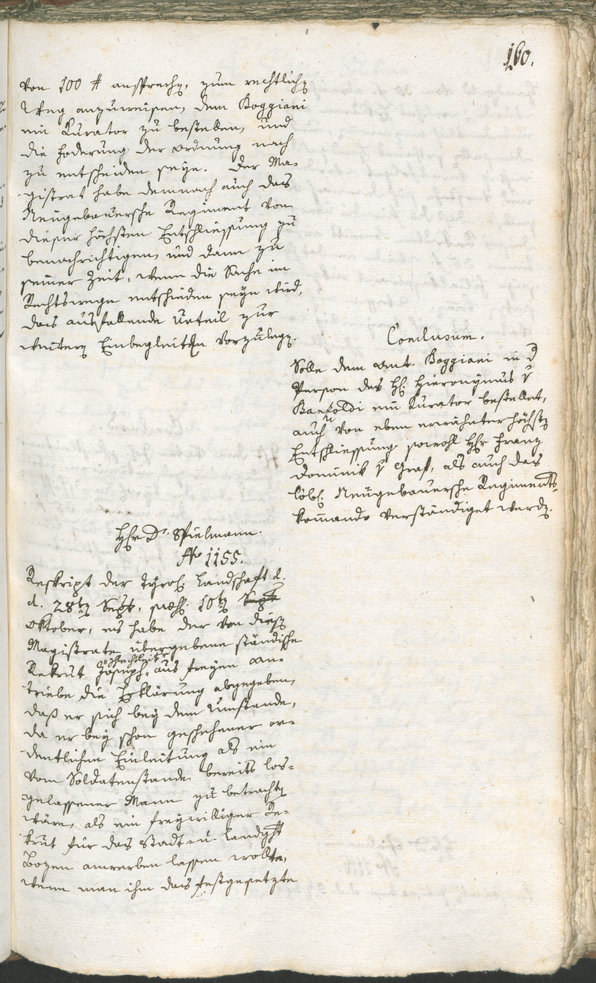 160.
von 100 f ansprechen, zum rechtlichen
Weg anzuweisen, dem Boggiani
ein Kurator zu bestellen, und
die Foderung der Ordnung nach
zu entscheiden seye. Der Ma-
gistrat habe demnach auch das
Neugebauersche Regiment von
dieser höchsten Entschliessung zu
benachrichtigen, und dann zu
seiner Zeit, wenn die Sache im
Rechtswege entschieden seyn wird,
das ausfallende Urteil zur
weitern Einbegleitung vorzulegen.
Conclusum.
Solle dem Boggiani in der
Person des Hr. Hieronymus v
Banfoldi ein Kurator bestellt,
auch von eben erwähnter höchsten
Entschliessung sowohl Hhr Franz
Dominik v Graf, als auch das
löbl. Neugebauersche Regiments-
komando verständiget werden.
Hhr Dr. Spielmann.
No 1155.
Reskript der Tyrol. Landschaft d.
d. 28ten Sept., 10ten Sept
Oktober, es habe der von diesem
Magistrate übergebene ständische
Rekrut Joseph aus freyen An-
triebe die Erklärung abgegeben,
daß er sich bey dem Umstande,
da er bey schon geschehener or-
dentlichen Einleitung als ein
vom Soldatenstande bereits los-
gelassener Mann zu betrachten
wäre, als ein freywilliger Re-
krut für das Stadt- u. Landgericht
Bozen anwerben lassen wollte,
wenn man ihm das festgesetzte